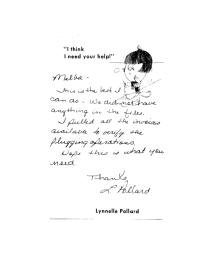 "I think
I need your help!"
Melba -
This is the best I
can do - We did not have
anything in the files.
I pulled all the invoices
available to verify the
plugging operations.
Hope this is what you
need
Thanks,
L Pollard
Lynnelle Pollard